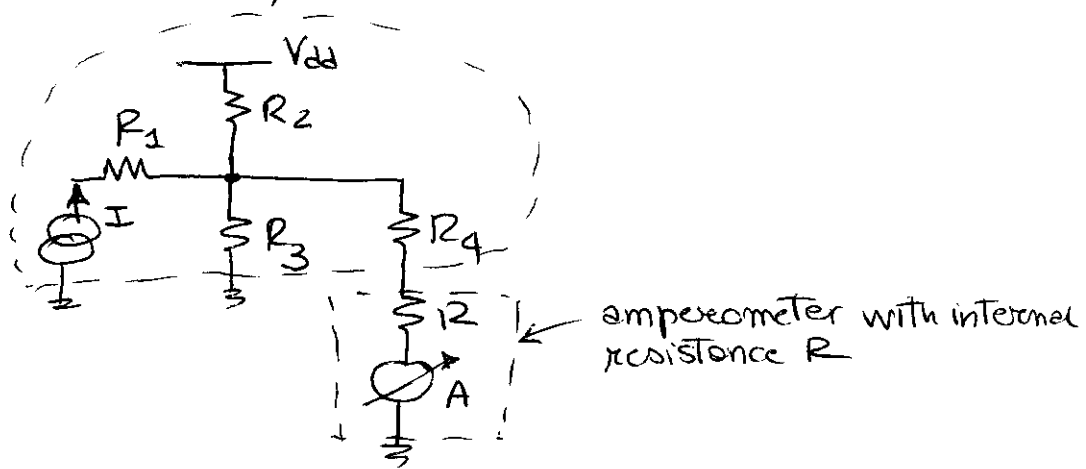 Vdd
R2
R1
I
R3
R4
R
A
amperometer with internal
resistance R